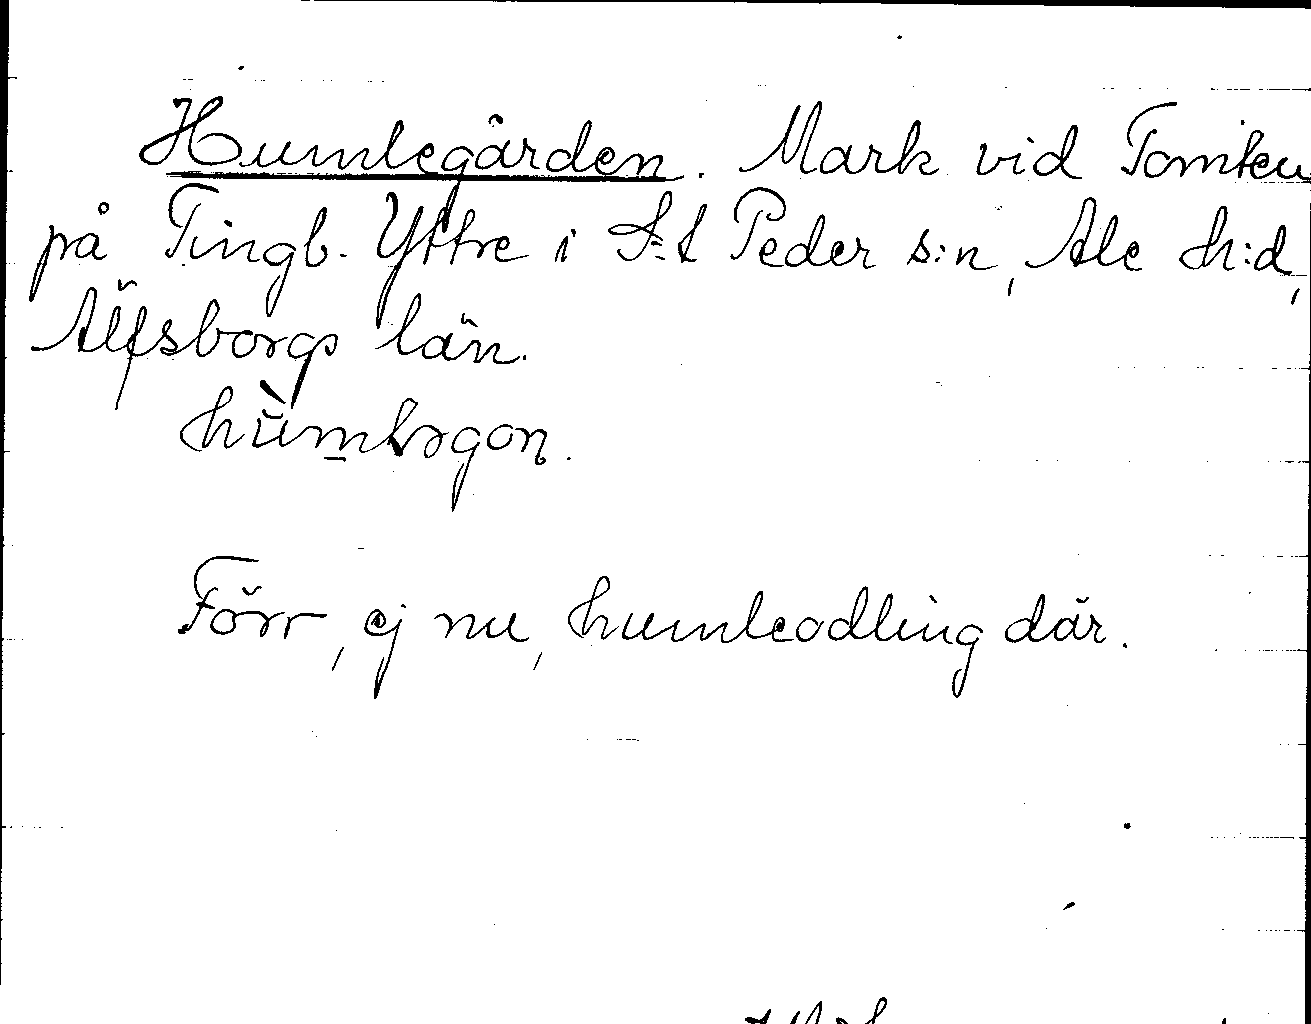 Humlegården. Mark vid Tomten
på Tingb. Yttre i S:t Peder s:n, Ale h:d,
Älfsborgs län.
Förr, ej nu, humleodling där.